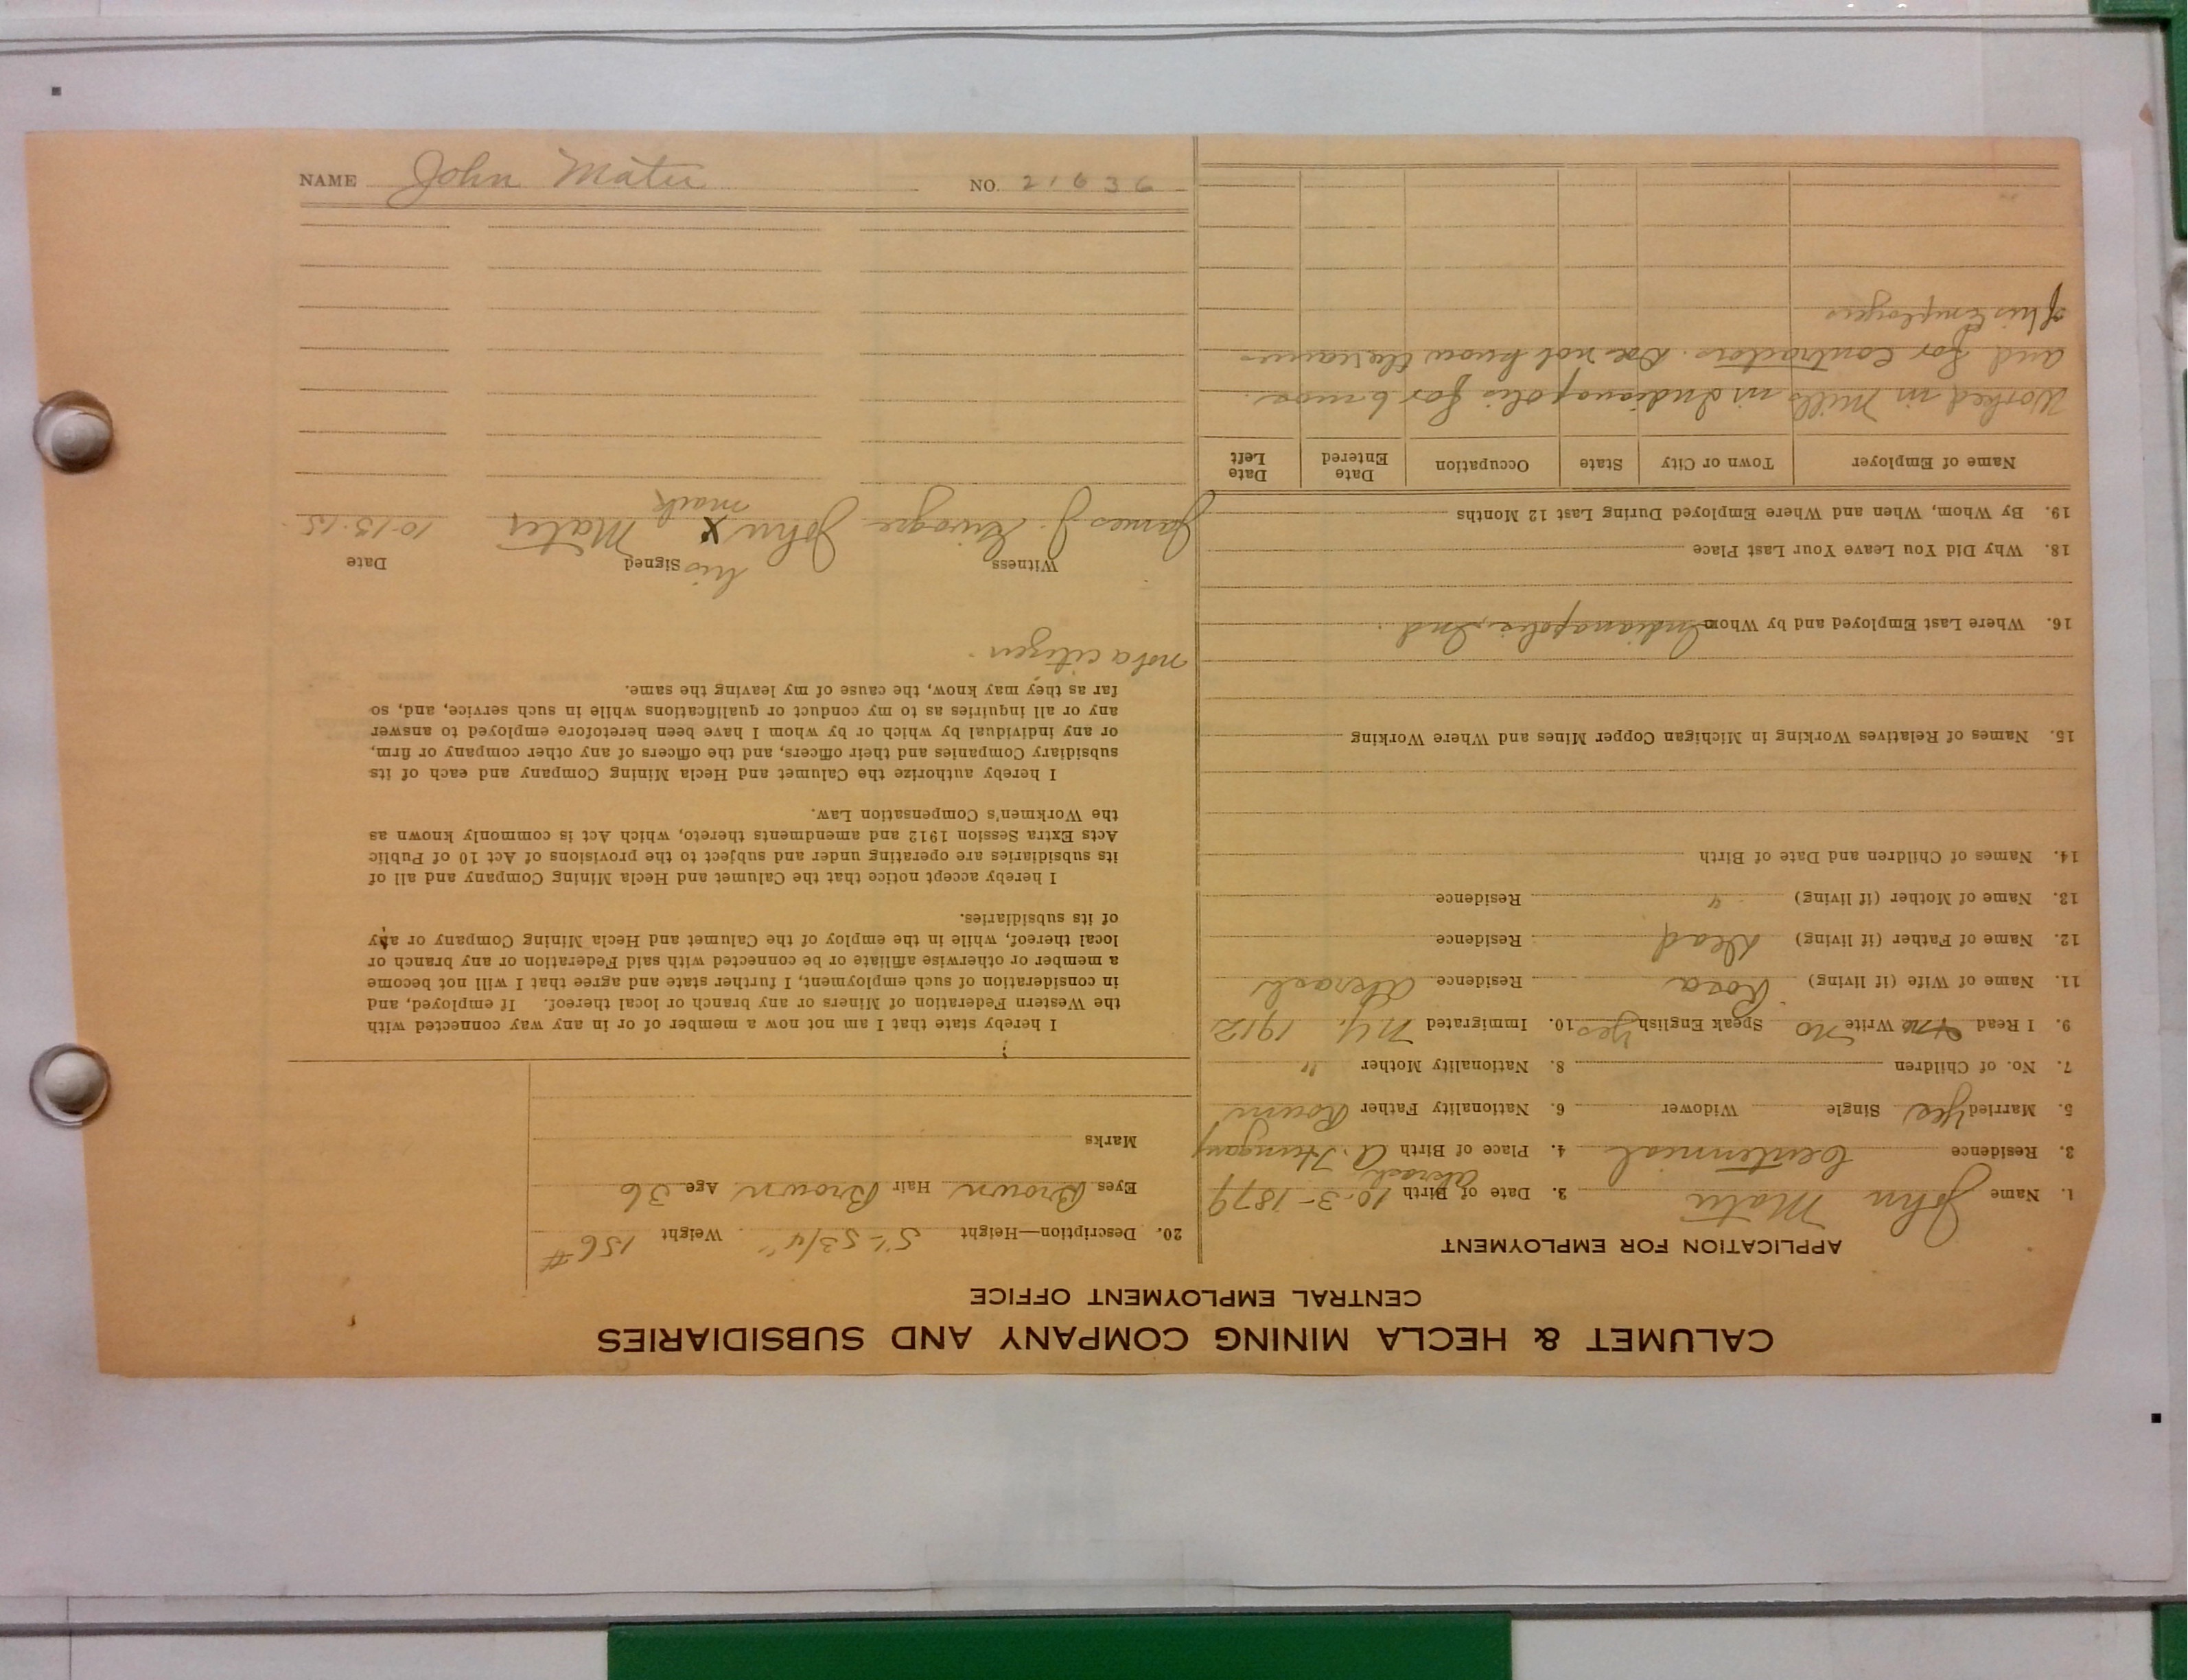 NAME John Matei NO. 21636
CALUMET & HECLA MINING COMPANY AND SUBSIDIARIES
CENTRAL EMPLOYMENT OFFICE
APPLICATION FOR EMPLOYMENT
1. Name John Matei 2. Date of Birth 10-3-1879
3. Residence Centennial 4. Place of Birth A. Hungary
5. Married Yes Single Widower 6. Nationality Father Roum
7. No. of Children 8. Nationality Mother "
9. I Read no Write No Speak English Yes 10. Immigrated N.Y. 1912
11. Name of Wife (if living) Rosa Residence
12. Name of Father (if living) Dead Residence
13. Name of Mother (if living) " Residence
14. Names of Children and Date of Birth
15. Names of Relatives Working in Michigan Copper Mines and Where Working
16. Where Last Employed and by Whom Indianapolis, Ind.
18. Why Did You Leave Your Last Place
19. By Whom, When and Where Employed During Last 12 Months
Name of Employer Town or City State Occupation Date Entered Date Left
Worked in Mills in Indianapolis for 6 mos.
and for Contractors. Doe not know the names
of his Employers
20. Description—Height 5'-5 3/4" Weight 156 #
Eyes Brown Hair Brown Age 36
Marks
I hereby state that I am not now a member of or in any way connected with
the Western Federation of Miners or any branch or local thereof. If employed, and
in consideration of such employment, I further state and agree that I will not become
a member or otherwise affiliate or be connected with said Federation or any branch or
local thereof, while in the employ of the Calumet and Hecla Mining Company or any
of its subsidiaries.
I hereby accept notice that the Calumet and Hecla Mining Company and all of
its subsidiaries are operating under and subject to the provisions of Act 10 of Public
Acts Extra Session 1912 and amendments thereto, which Act is commonly known as
the Workmen's Compensation Law.
I hereby authorize the Calumet and Hecla Mining Company and each of its
subsidiary Companies and their officers, and the officers of any other company or firm,
or any individual by which or by whom I have been heretofore employed to answer
any or all inquiries as to my conduct or qualifications while in such service, and, so
far as they may know, the cause of my leaving the same.
not a citizen.
Witness his Signed Date
James J. John X Matei 10-13-15
mark